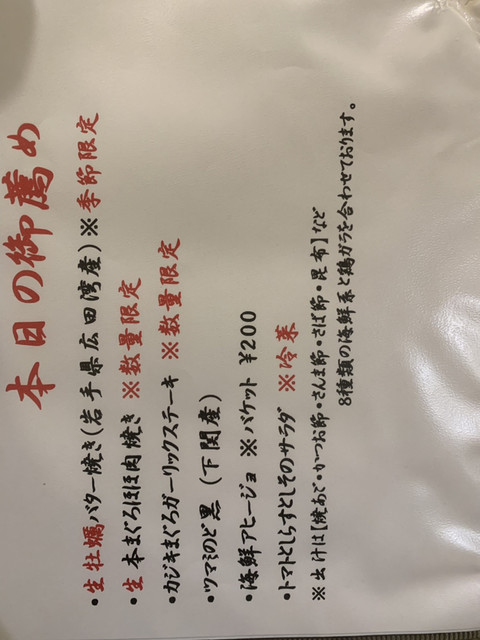 本日の御薦め
・生牡蠣バター焼き(岩手県広田湾産)※季節限定
・生本まぐろほほ肉焼き ※数量限定
・カジキまぐろガーリックステーキ ※数量限定
・ツマミのど黒 (下関産)
・海鮮アヒージョ ※バケット ¥200
・トマトとしらすとしそのサラダ ※冷菜
※出汁は【焼あご・かつお節・さんま節・さば節・昆布】など
8種類の海鮮系と鶏ガラを合わせております。